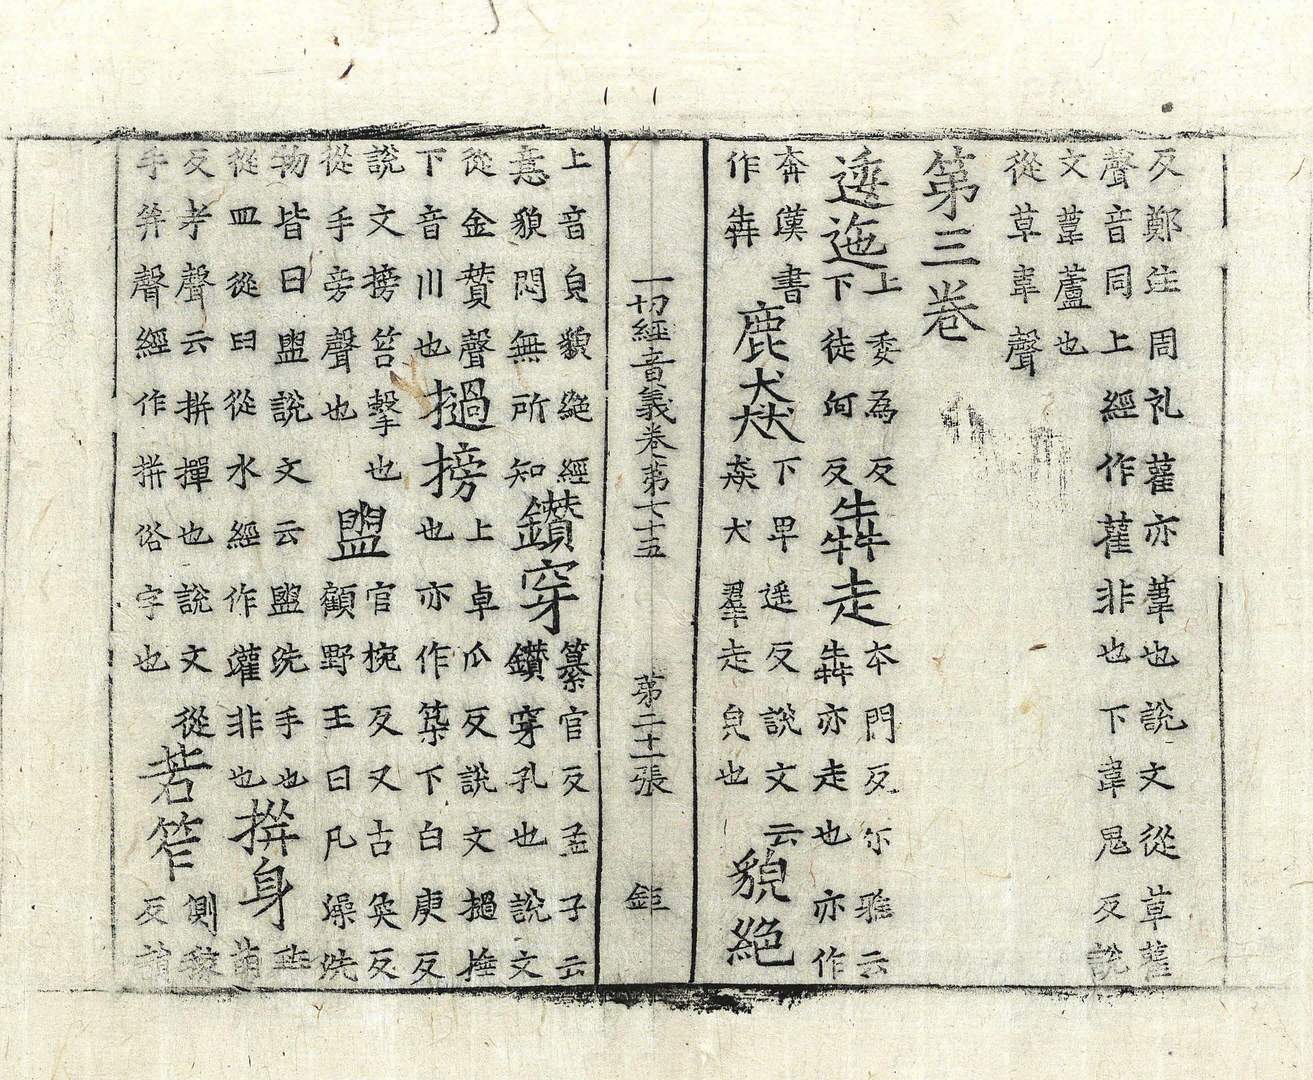 反鄭注周礼萑亦葦也說文從草萑
聲音同上經作雚非也下韋鬼反說
文葦蘆也
從草韋聲
第三卷
逶迤
上委為反
下徒何反
犇走
本門反尓雅云
犇亦走也亦作
奔漢書
作犇
鹿猋
下早遥反說文云
猋犬羣走皃也
貌絕
一切經音義卷第七十五 第二十一張 鉅
上音皃貌絕經
意貌悶無所知
鑽穿
纂官反孟子云
鑽穿孔也說文
從金贊聲
下音川也
撾搒
上卓瓜反說文撾捶
也亦作築下白庚反
說文搒笞擊也
從手旁聲也
盥
官椀反又古奐反
顧野王曰凡澡洗
物皆曰盥說文云盥洗手也
從皿從臼從水經作灌非也
拼身
反考聲云拼撣也說文從
手并聲經作拼俗字也
若笮
側
反